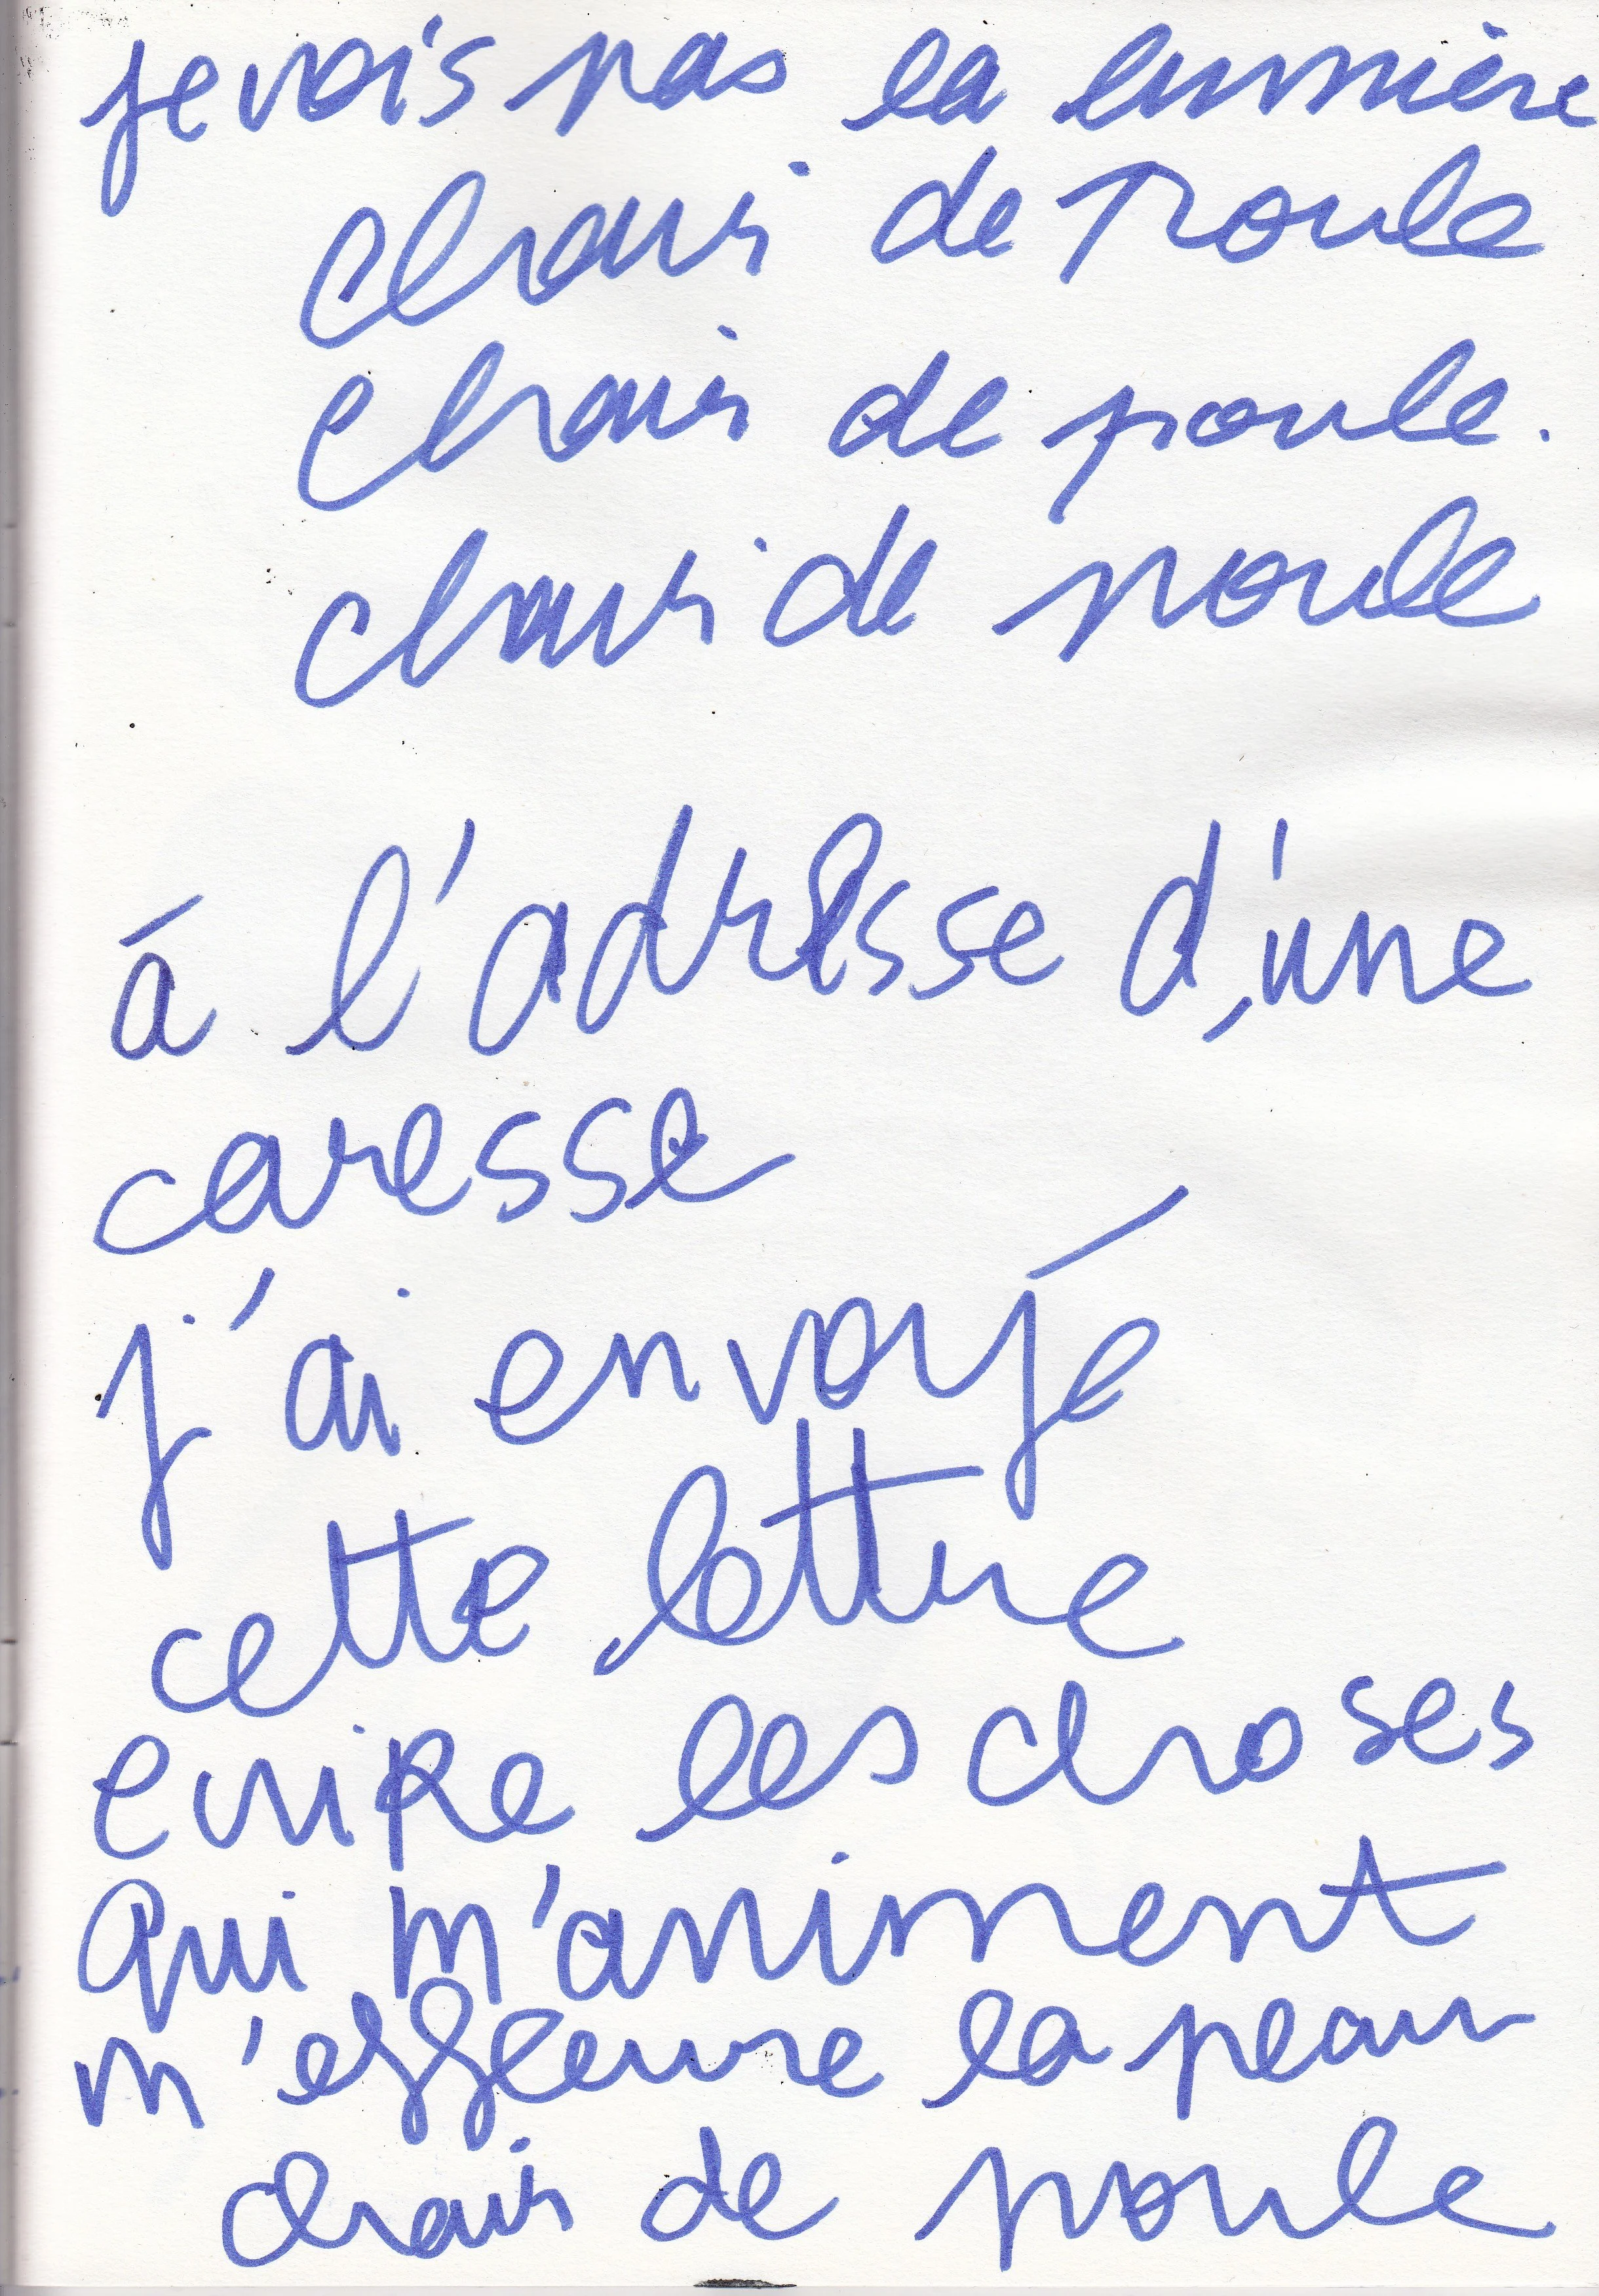 je vois pas la lumière
chair de Poule
chair de poule.
chair de poule
à l'adresse d'une
caresse
j'ai envoyé
cette lettre
ecrire les choses
Qui m'animent
m'effleure la peau
chair de poule